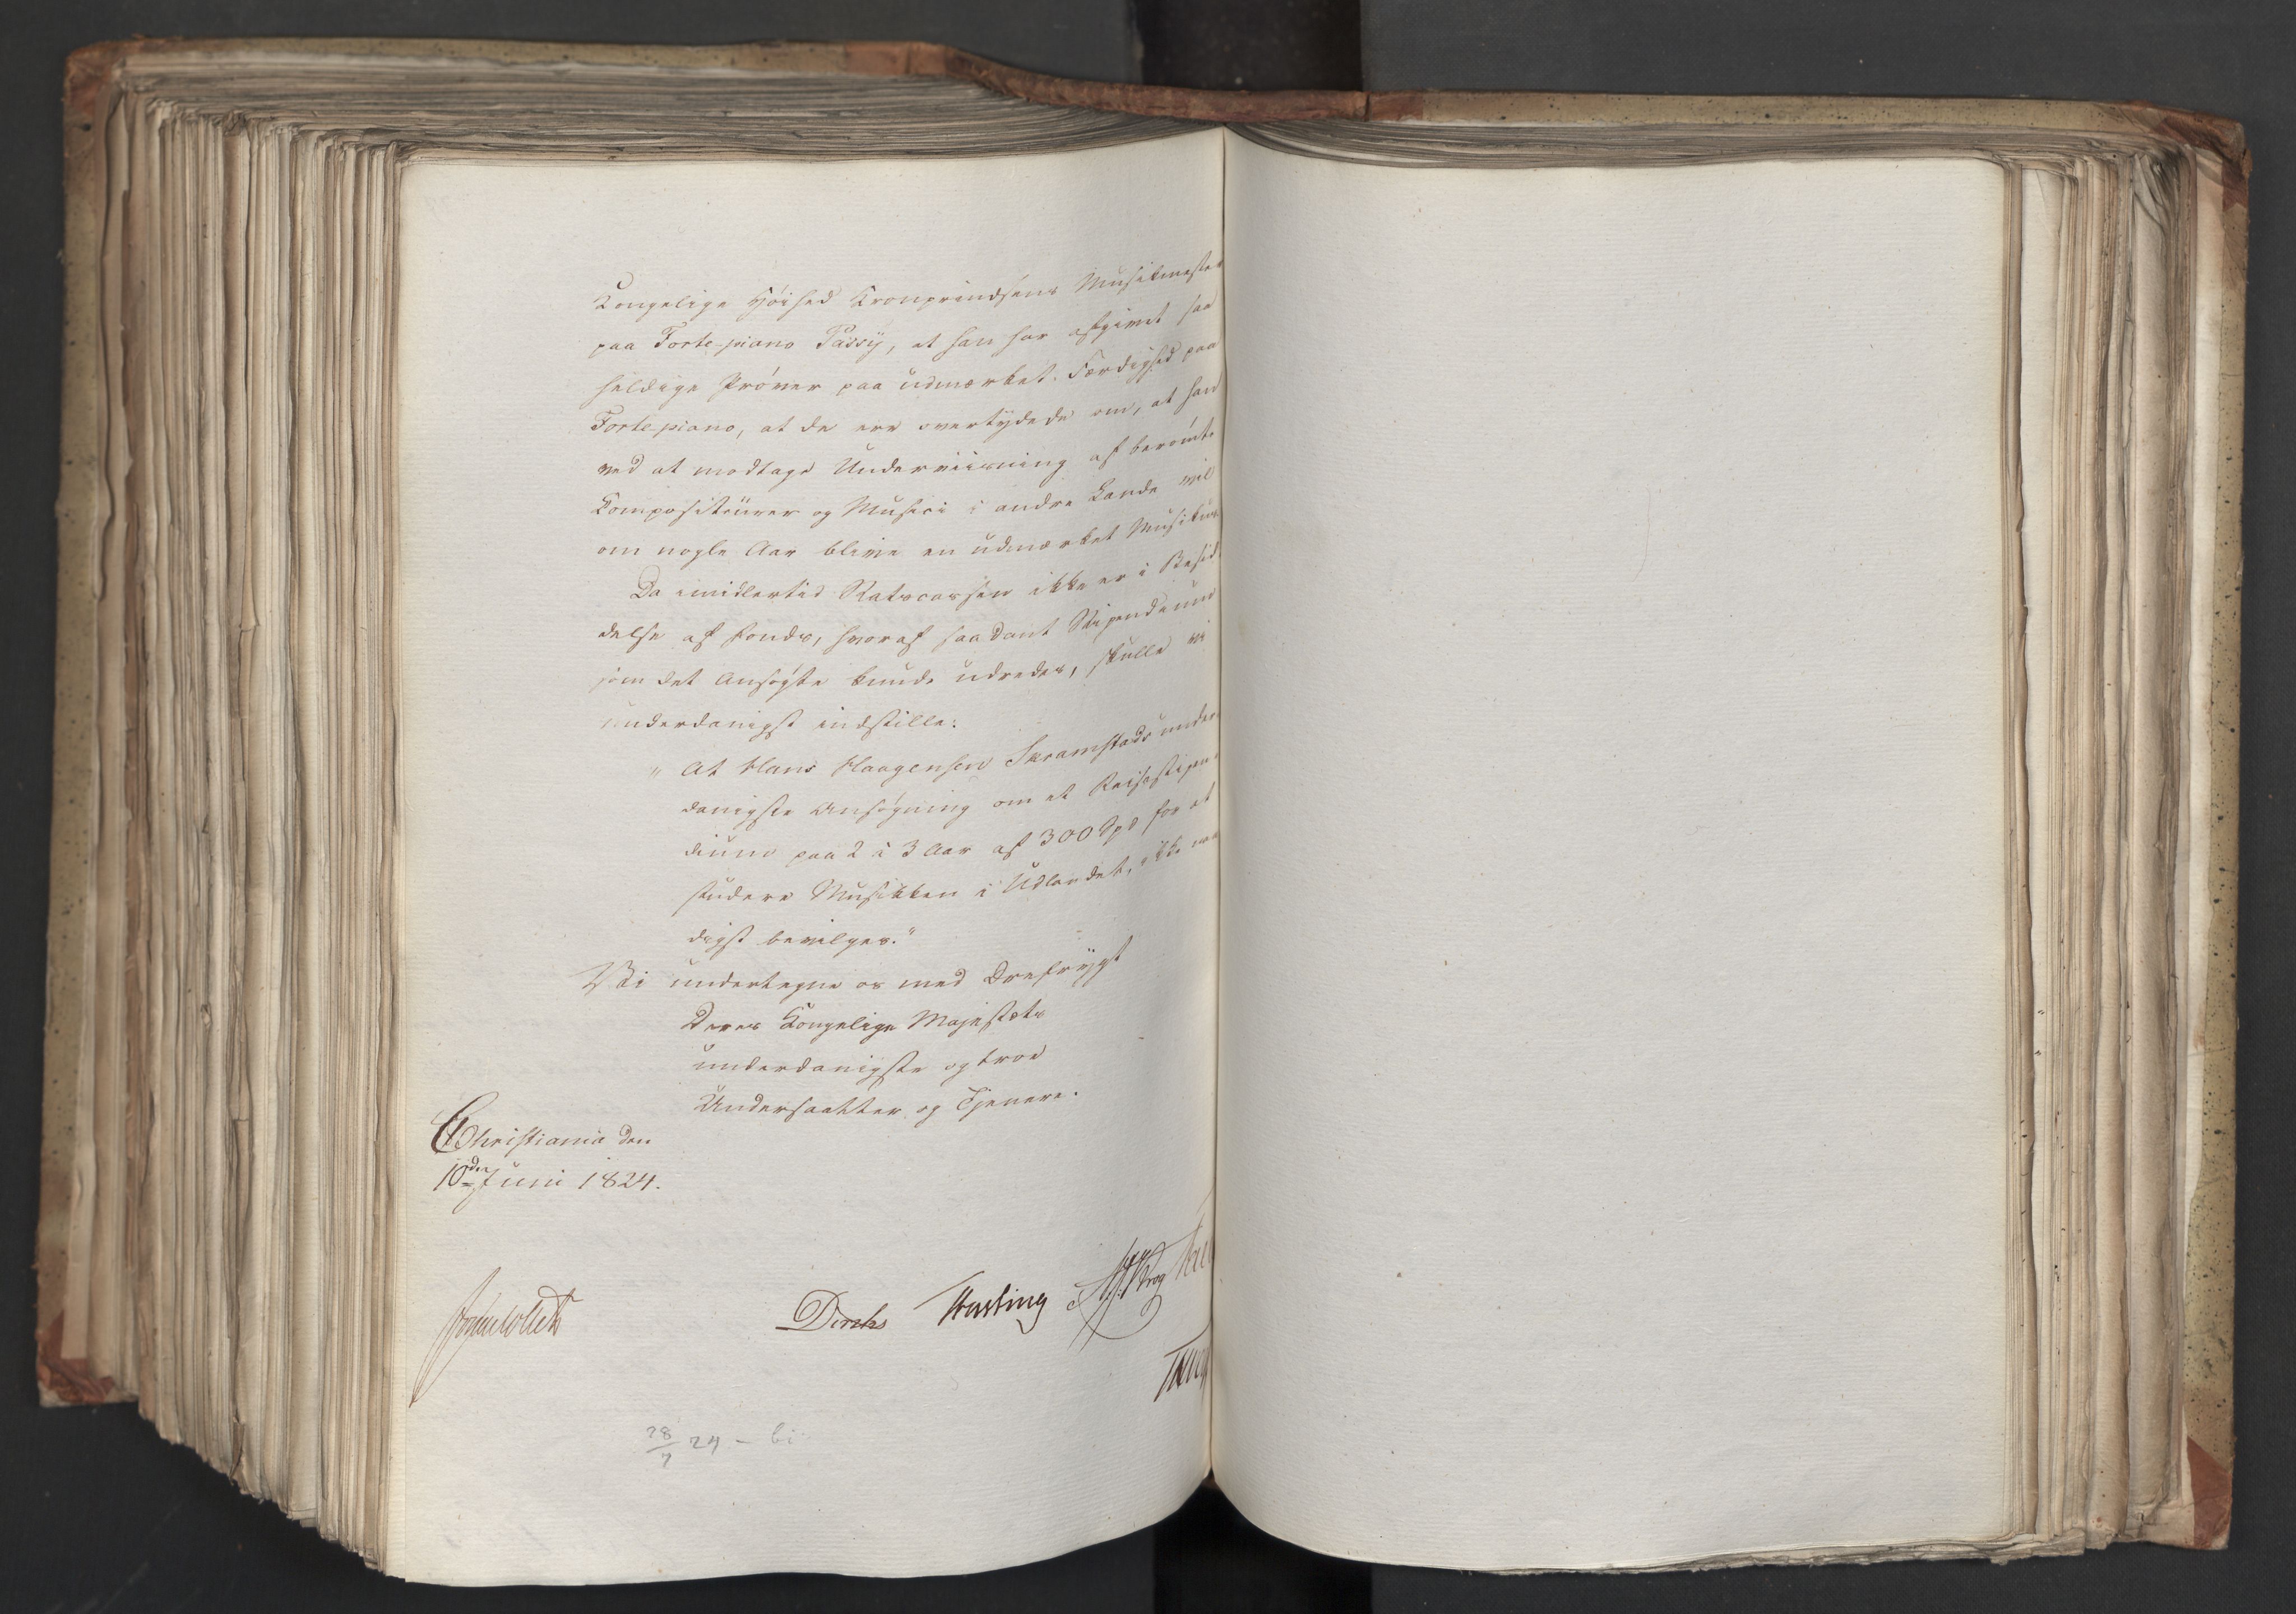 Kongelige Høihed Kronprindsens Musikmester
paa Forte-piano Passÿ, at han har afgivet saa
heldige Prøver paa udmærket Færdighed paa
Forte-piano, at de ere overtydede om, at han
ved at modtage Underviisning af berømte
Compositeurer og Musici i andre Lande vil
om nogle Aar blive en udmærket Musikus
Da imidlertid Statscassen ikke er i Besid
delse af Fonds, hvoraf saadant Stipendium
som det Ansøgte kunde udredes, skulle vi
underdanigst indstille:
" At Hans Haagensen Skramstads under
danigste Ansøgning om et Reisestipen
dium paa 2 à 3 Aar af 300 Spd for at
studere Musikken i Udlandet, ikke naa
digst bevilges."
Vi undertegne os med Ærefrygt
Deres Kongelige Majestæts
underdanigste og troe
Undersaatter og Tjenere.
Christiania den
10de Juni 1824.
Jonas Collett
Diriks Hasting Krog
28/7 24 - bi